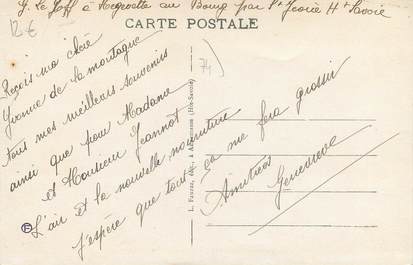 G. Le Goff à Megevette au Bourg par St Jeoire Hte Savoie
CARTE POSTALE
12 €
74
Reçois ma chère
Yvonne de la montagne
tous mes meilleurs souvenirs
ainsi que pour Madame
et Monsieur Jeannot
L'air et la nouvelle nourriture
j'espère que tout ça me fera grossir
Amitiés
Geneviève
L. Fauraz, édit., à (Hte-Savoie)